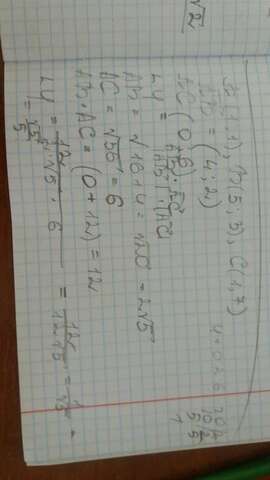 A(1;1), B(5;3), C(1;7)
AB = (4;2)
AC(0;6)
∠Y = AB·AC / |AB|·|AC|
AB = √16+4 = √20 = 2√5
AC = √36 = 6
AB·AC = (0+12) = 12
∠Y = 12 / 2√5·6 = 12 / 12√5 = 1/√5
= √5/5
√2